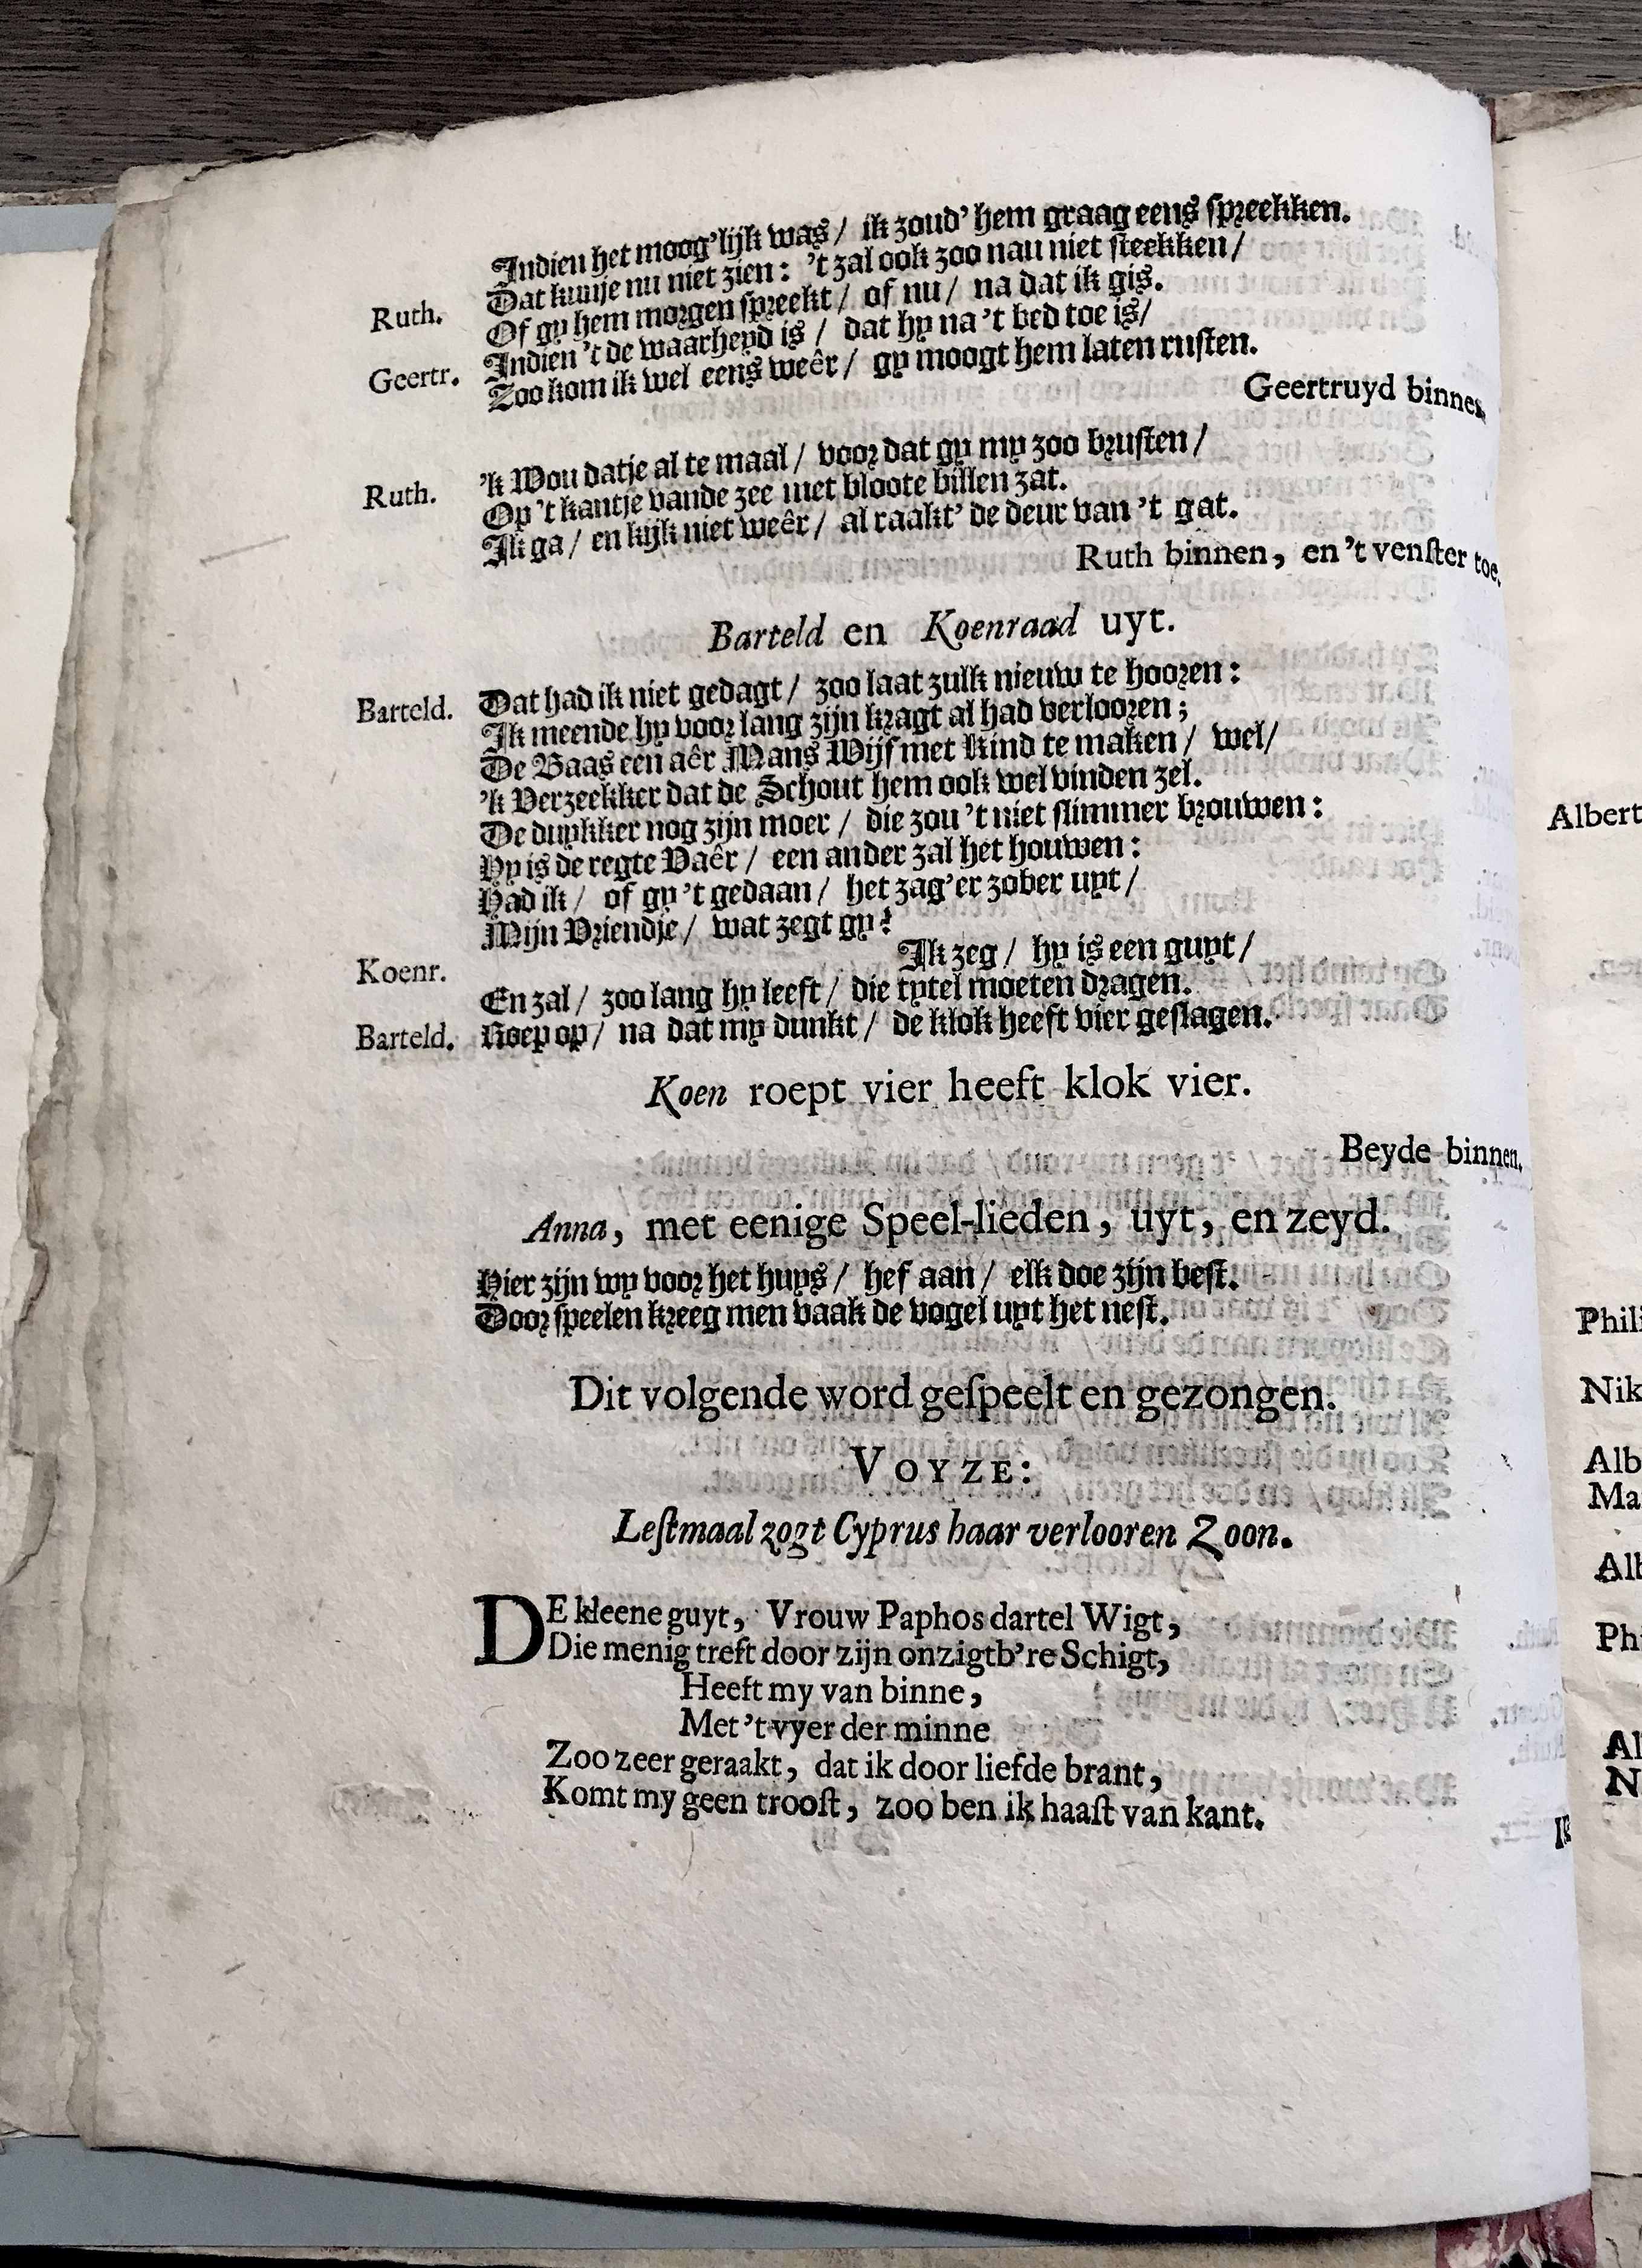 Indien het moog'lijk was / ik zoud' hem graag eens spreekken.
Ruth. Dat kunje nu niet zien: 't zal ook zoo nau niet steekken /
Of gy hem morgen spreekt / of nu / na dat ik gis.
Geertr. Indien 't de waarheyd is / dat hy na 't bed toe is /
Zoo kom ik wel eens weêr / gy moogt hem laten rusten.
Geertruyd binnen.
Ruth. 'k Wou datje al te maal / voor dat gy my zoo brusten /
Op 't kantje vande zee met bloote billen zat.
Ik ga / en kijk niet weêr / al raakt' de deur van 't gat.
Ruth binnen, en 't venſter toe.
Barteld en Koenraad uyt.
Barteld. Dat had ik niet gedagt / zoo laat zulk nieuw te hooren:
Ik meende hy voor lang zijn kragt al had verlooren;
De Baas een aêr Mans Wijf met Kind te maken / wel /
'k Verzeekker dat de Schout hem ook wel vinden zel.
De duykker nog zijn moer / die zou 't niet slimmer brouwen:
Hy is de regte Vaêr / een ander zal het houwen:
Had ik / of gy 't gedaan / het zag'er zober uyt /
Mijn Vriendje / wat zegt gy?
Koenr. Ik zeg / hy is een guyt /
En zal / zoo lang hy leeft / die tytel moeten dragen.
Barteld. Roep op / na dat my dunkt / de klok heeft vier geslagen.
Koen roept vier heeft klok vier.
Beyde binnen.
Anna, met eenige Speel-lieden, uyt, en zeyd.
Hier zijn wy voor het huys / hef aan / elk doe zijn best.
Door speelen kreeg men vaak de vogel uyt het nest.
Dit volgende word geſpeelt en gezongen.
VOYZE:
Leſtmaal zogt Cyprus haar verlooren Zoon.
DE kleene guyt, Vrouw Paphos dartel Wigt,
Die menig treft door zijn onzigtb're Schigt,
Heeft my van binne,
Met 't vyer der minne
Zoo zeer geraakt, dat ik door liefde brant,
Komt my geen trooſt, zoo ben ik haaſt van kant.
Albert